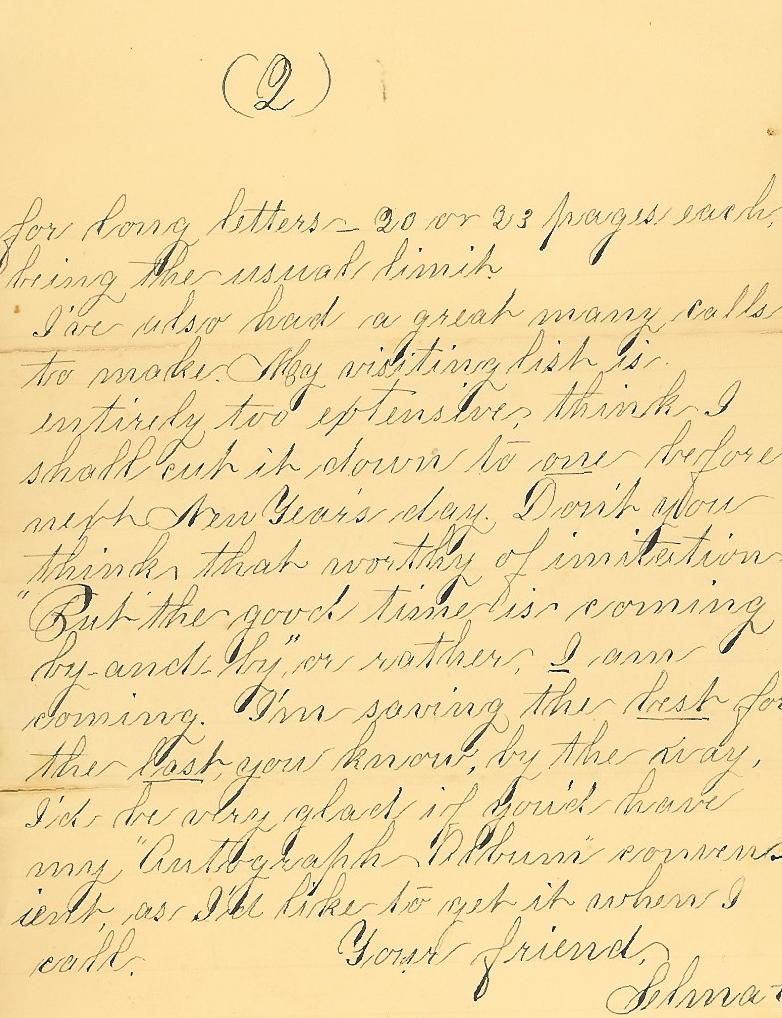 (2)
for long letters - 20 or 23 pages each,
being the usual limit.
I've also had a great many calls
to make. My visiting list is
entirely too extensive, think I
shall cut it down to one before
next New Year's day. Don't you
think that worthy of imitation
"But the good time is coming
by-and-by", or rather, I am
coming. I'm saving the best for
the last, you know, by the way,
I'd be very glad if you'd have
my "Autograph Album" conven-
ient, as I'd like to get it when I
call. Your friend,
Selma